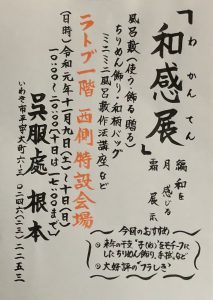 わかんてん
「和感展」
和を感じる展示
風呂敷(使う・飾る・贈る)
ちりめん飾り・和柄バッグ
ミニミニ風呂敷作法講座など
(日時) 令和元年十一月九日(土)〜十日(日)
10:00〜20:00(十日は17:00まで)
ラトブ一階 西側特設会場
呉服處 根本
いわき市平字大町六-三
〇二四六(二三)二二五三
今回のおすすめ
◎来年の干支"子(ね)"をモチーフに
したちりめん飾り、手拭、など
◎大好評の"フラしき"